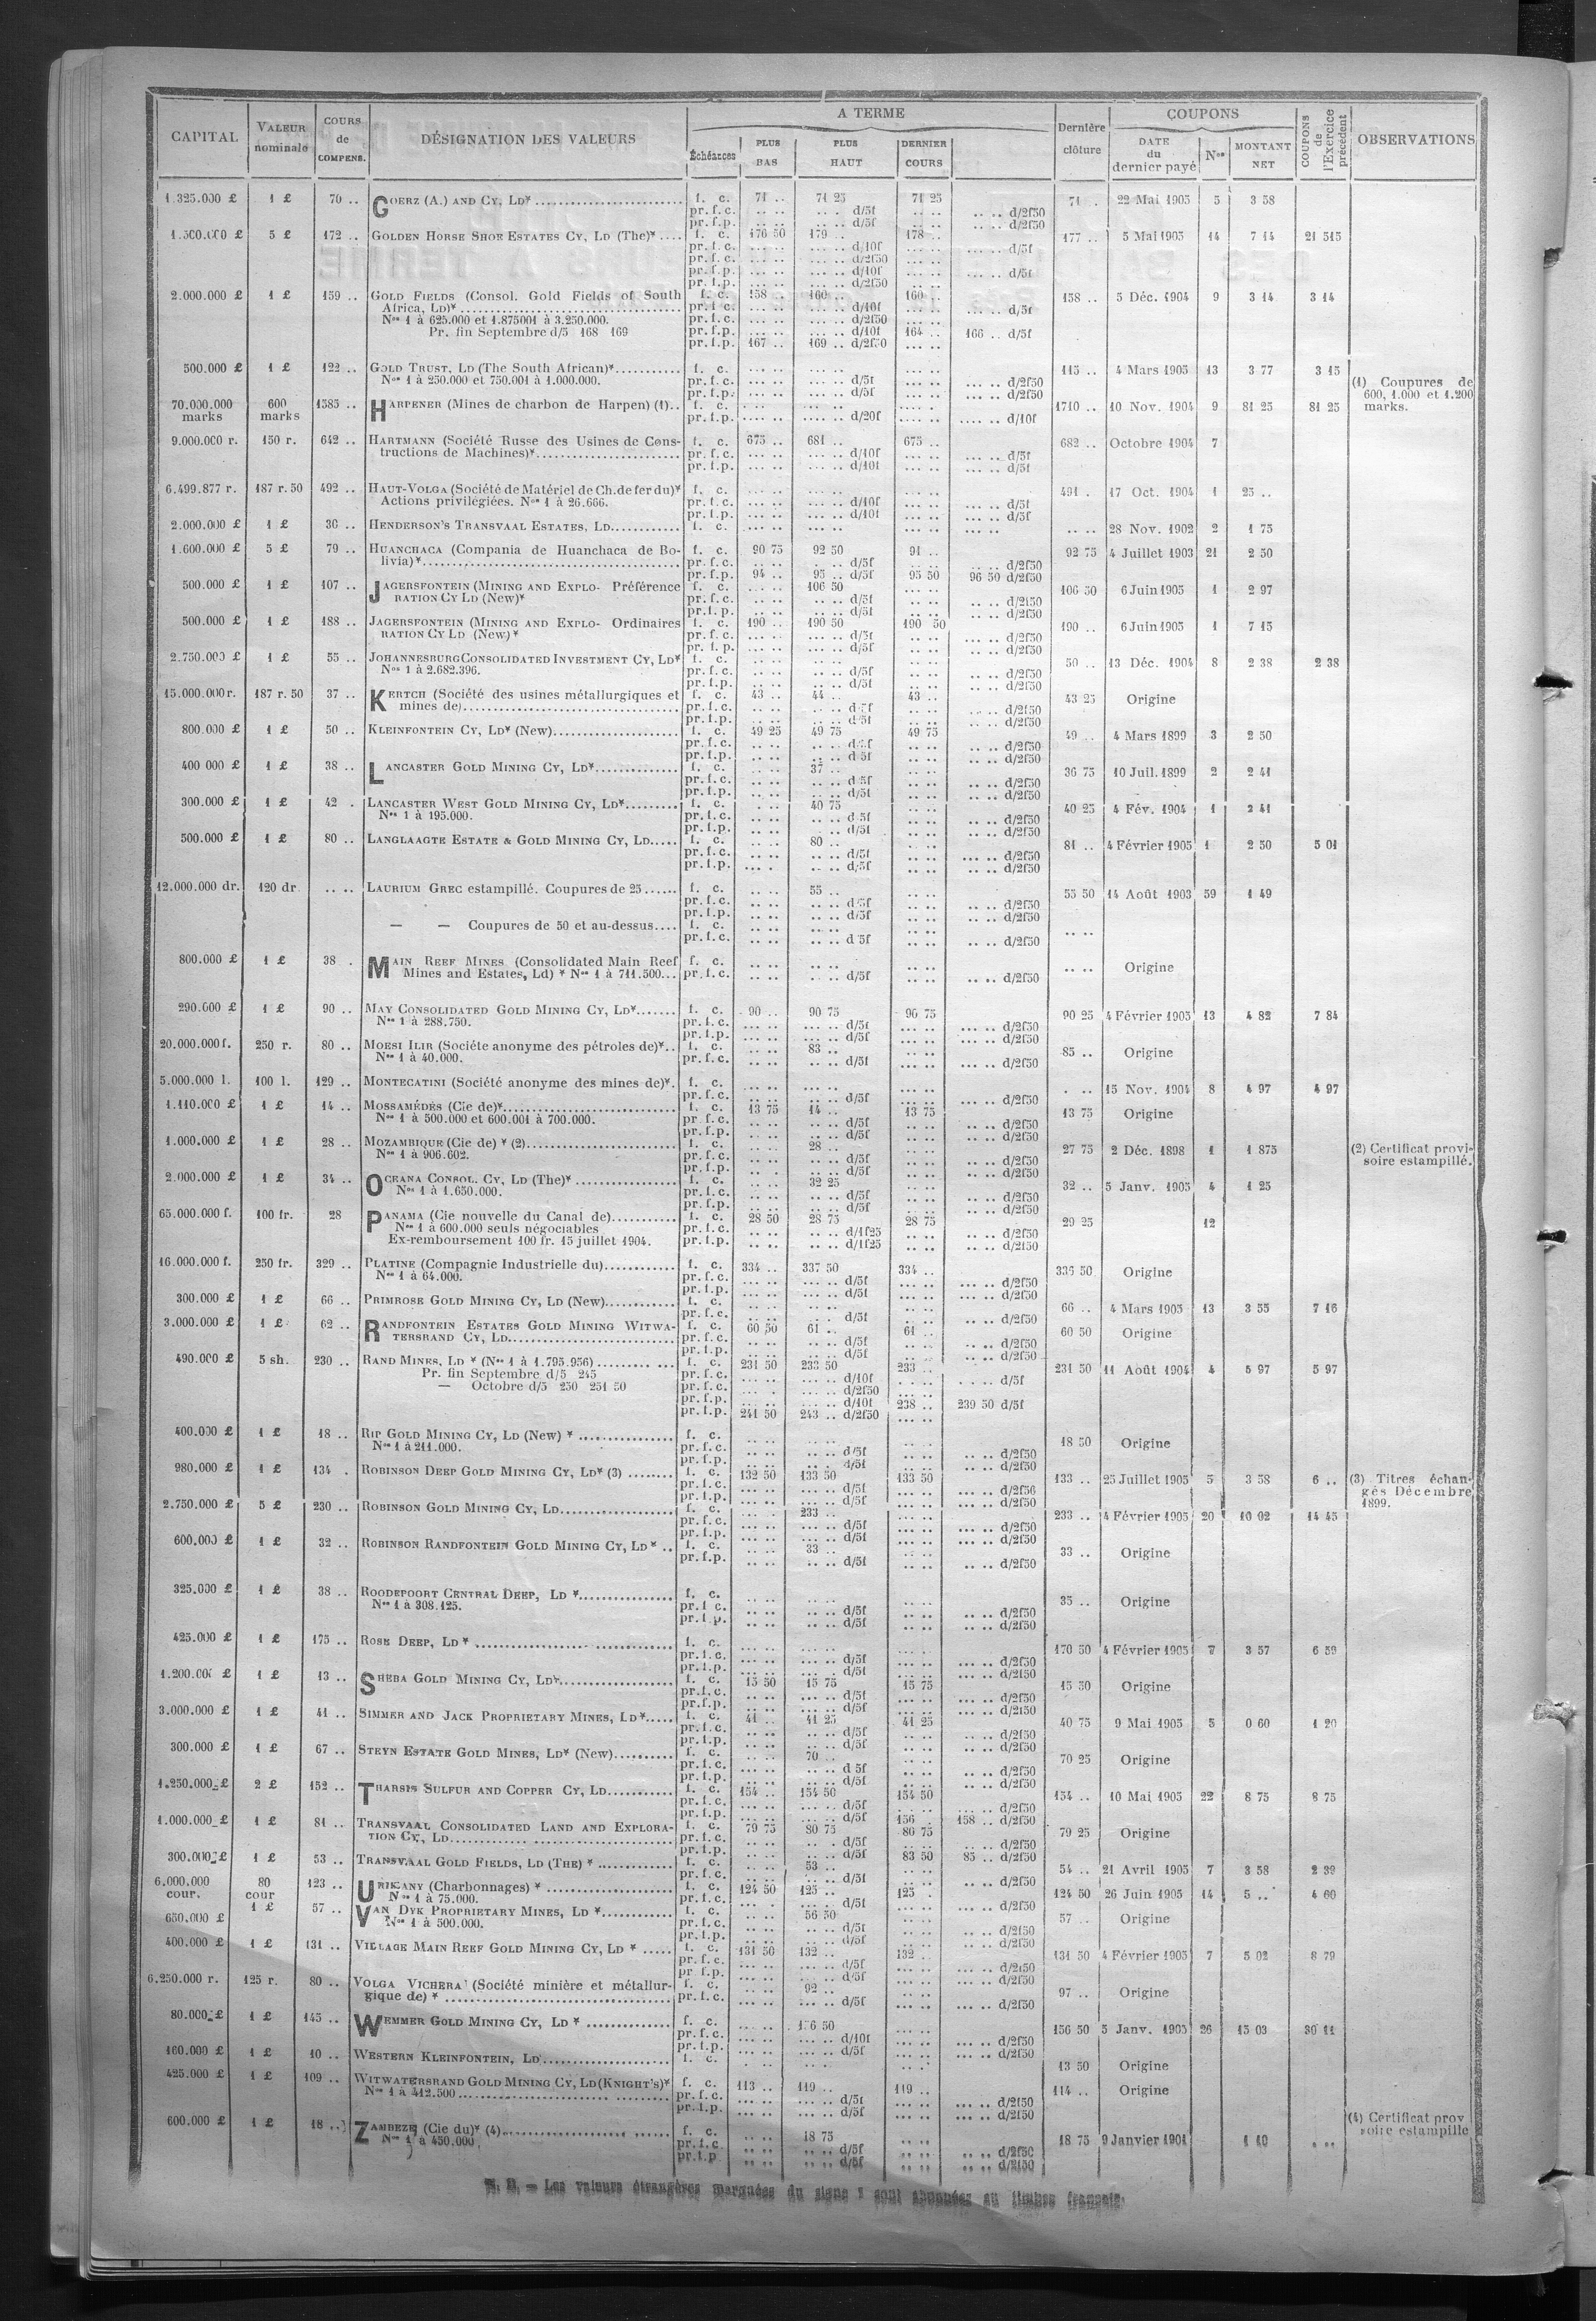 CAPITAL | VALEUR nominale | COURS de COMPENS. | DÉSIGNATION DES VALEURS | A TERME | Dernière clôture | COUPONS | COUPONS de l'Exercice précédent | OBSERVATIONS
Échéances | PLUS BAS | PLUS HAUT | DERNIER COURS | DATE du dernier payé | Nos | MONTANT NET
1.325.000 £ | 1 £ | 70 .. | GOERZ (A.) AND CY, LD* | f. c. | 71 .. | 71 25 | 71 25 | 71 .. | 22 Mai 1905 | 5 | 3 58
pr. f. c. | d/5f | d/2f50
pr. f. p. | d/5f | d/2f50
1.500.000 £ | 5 £ | 172 .. | GOLDEN HORSE SHOE ESTATES CY, LD (The)* | f. c. | 176 50 | 179 .. | 178 .. | 177 .. | 5 Mai 1905 | 14 | 7 14 | 21 515
pr. f. c. | d/10f | d/5f
pr. f. c. | d/2f50
pr. f. p. | d/10f | d/5f
pr. f. p. | d/2f50
2.000.000 £ | 1 £ | 159 .. | GOLD FIELDS (Consol. Gold Fields of South | f. c. | 158 .. | 160 .. | 160 .. | 158 .. | 5 Déc. 1904 | 9 | 3 14 | 3 14
Africa, LD)* | pr. f. c. | d/10f | d/5f
Nos 1 à 625.000 et 1.875001 à 3.250.000. | pr. f. c. | d/2f50
Pr. fin Septembre d/5 168 169 | pr. f. p. | d/10f | 164 .. | 166 .. d/5f
pr. f. p. | 167 .. | 169 .. d/2f50
500.000 £ | 1 £ | 122 .. | GOLD TRUST, LD (The South African)* | f. c. | 115 .. | 4 Mars 1905 | 13 | 3 77 | 3 15
Nos 1 à 250.000 et 750.001 à 1.000.000. | pr. f. c. | d/5f | d/2f50 | (1) Coupures de
pr. f. p. | d/5f | d/2f50 | 600, 1.000 et 1.200
70.000.000 marks | 600 marks | 1585 .. | HARPENER (Mines de charbon de Harpen) (1).. | f. c. | 1710 .. | 10 Nov. 1904 | 9 | 81 25 | 81 25 | marks.
pr. f. p. | d/20f | d/10f
9.000.000 r. | 150 r. | 642 .. | HARTMANN (Société Russe des Usines de Cons- | f. c. | 675 .. | 681 .. | 675 .. | 682 .. | Octobre 1904 | 7
tructions de Machines)* | pr. f. c. | d/10f | d/5f
pr. f. p. | d/10f | d/5f
6.499.877 r. | 187 r. 50 | 492 .. | HAUT-VOLGA (Société de Matériel de Ch. de fer du)* | f. c. | 491 . | 17 Oct. 1904 | 1 | 25 ..
Actions privilégiées. Nos 1 à 26.666. | pr. f. c. | d/10f | d/5f
pr. f. p. | d/10f | d/5f
2.000.000 £ | 1 £ | 36 .. | HENDERSON'S TRANSVAAL ESTATES, LD | f. c. | 28 Nov. 1902 | 2 | 1 75
1.600.000 £ | 5 £ | 79 .. | HUANCHACA (Compania de Huanchaca de Bo- | f. c. | 90 75 | 92 50 | 91 .. | 92 75 | 4 Juillet 1903 | 21 | 2 50
livia)* | pr. f. c. | d/5f | d/2f50
pr. f. p. | 94 .. | 95 .. d/5f | 95 50 | 96 50 d/2f50
500.000 £ | 1 £ | 107 .. | JAGERSFONTEIN (MINING AND EXPLO- Préférence | f. c. | 106 50 | 106 50 | 6 Juin 1905 | 1 | 2 97
RATION CY LD (New)* | pr. f. c. | d/5f | d/2f50
pr. f. p. | d/5f | d/2f50
500.000 £ | 1 £ | 188 .. | JAGERSFONTEIN (MINING AND EXPLO- Ordinaires | f. c. | 190 .. | 190 50 | 190 50 | 190 .. | 6 Juin 1905 | 1 | 7 15
RATION CY LD (New)* | pr. f. c. | d/5f | d/2f50
pr. f. p. | d/5f | d/2f50
2.750.000 £ | 1 £ | 55 .. | JOHANNESBURG CONSOLIDATED INVESTMENT CY, LD* | f. c. | 50 .. | 13 Déc. 1904 | 8 | 2 38 | 2 38
Nos 1 à 2.682.396. | pr. f. c. | d/5f | d/2f50
pr. f. p. | d/5f | d/2f50
15.000.000 r. | 187 r. 50 | 37 .. | KERTCH (Société des usines métallurgiques et | f. c. | 43 .. | 44 .. | 43 .. | 43 25 | Origine
mines de) | pr. f. c. | d/5f | d/2f50
pr. f. p. | d/5f | d/2f50
800.000 £ | 1 £ | 50 .. | KLEINFONTEIN CY, LD* (New) | f. c. | 49 25 | 49 75 | 49 75 | 49 .. | 4 Mars 1899 | 3 | 2 50
pr. f. c. | d/5f | d/2f50
pr. f. p. | d/5f | d/2f50
400 000 £ | 1 £ | 38 .. | LANCASTER GOLD MINING CY, LD* | f. c. | 37 .. | 36 75 | 10 Juil. 1899 | 2 | 2 41
pr. f. c. | d/5f | d/2f50
pr. f. p. | d/5f | d/2f50
300.000 £ | 1 £ | 42 . | LANCASTER WEST GOLD MINING CY, LD* | f. c. | 40 75 | 40 25 | 4 Fév. 1904 | 1 | 2 41
Nos 1 à 195.000. | pr. f. c. | d/5f | d/2f50
pr. f. p. | d/5f | d/2f50
500.000 £ | 1 £ | 80 .. | LANGLAAGTE ESTATE & GOLD MINING CY, LD | f. c. | 80 .. | 81 .. | 4 Février 1905 | 1 | 2 50 | 5 01
pr. f. c. | d/5f | d/2f50
pr. f. p. | d/5f | d/2f50
12.000.000 dr. | 120 dr | .. .. | LAURIUM GREC estampillé. Coupures de 25 | f. c. | 55 .. | 55 50 | 14 Août 1903 | 59 | 1 49
pr. f. c. | d/5f | d/2f50
pr. f. p. | d/5f | d/2f50
— — Coupures de 50 et au-dessus | f. c.
pr. f. c. | d/5f | d/2f50
800.000 £ | 1 £ | 38 . | MAIN REEF MINES (Consolidated Main Reef | f. c. | Origine
Mines and Estates, Ld) * Nos 1 à 711.500 | pr. f. c. | d/5f | d/2f50
290.000 £ | 1 £ | 90 .. | MAY CONSOLIDATED GOLD MINING CY, LD* | f. c. | 90 .. | 90 75 | 90 75 | 90 25 | 4 Février 1905 | 13 | 4 82 | 7 84
Nos 1 à 288.750. | pr. f. c. | d/5f | d/2f50
pr. f. p. | d/5f | d/2f50
20.000.000 f. | 250 r. | 80 .. | MOESI ILIR (Sociéte anonyme des pétroles de)* | f. c. | 83 .. | 85 .. | Origine
Nos 1 à 40.000. | pr. f. c. | d/5f | d/2f50
5.000.000 l. | 100 l. | 129 .. | MONTECATINI (Société anonyme des mines de)* | f. c. | 15 Nov. 1904 | 8 | 4 97 | 4 97
pr. f. c. | d/5f | d/2f50
1.110.000 £ | 1 £ | 14 .. | MOSSAMÉDÈS (Cie de)* | f. c. | 13 75 | 14 .. | 13 75 | 13 75 | Origine
Nos 1 à 500.000 et 600.001 à 700.000. | pr. f. c. | d/5f | d/2f50
pr. f. p. | d/5f | d/2f50
1.000.000 £ | 1 £ | 28 .. | MOZAMBIQUE (Cie de) * (2) | f. c. | 28 .. | 27 75 | 2 Déc. 1898 | 1 | 1 875 | (2) Certificat provi-
Nos 1 à 906.602. | pr. f. c. | d/5f | d/2f50 | soire estampillé.
pr. f. p. | d/5f | d/2f50
2.000.000 £ | 1 £ | 34 .. | OCEANA CONSOL. CY, LD (The)* | f. c. | 32 25 | 32 .. | 5 Janv. 1905 | 4 | 1 25
Nos 1 à 1.650.000. | pr. f. c. | d/5f | d/2f50
pr. f. p. | d/5f | d/2f50
65.000.000 f. | 100 fr. | 28 | PANAMA (Cie nouvelle du Canal de) | f. c. | 28 50 | 28 75 | 28 75 | 29 25 | 12
Nos 1 à 600.000 seuls négociables | pr. f. c. | d/1f25 | d/2f50
Ex-remboursement 100 fr. 15 juillet 1904. | pr. f. p. | d/1f25 | d/2f50
16.000.000 f. | 250 fr. | 329 .. | PLATINE (Compagnie Industrielle du) | f. c. | 334 .. | 337 50 | 334 .. | 336 50 | Origine
Nos 1 à 64.000. | pr. f. c. | d/5f | d/2f50
pr. f. p. | d/5f | d/2f50
300.000 £ | 1 £ | 66 .. | PRIMROSE GOLD MINING CY, LD (New) | f. c. | 66 .. | 4 Mars 1905 | 13 | 3 55 | 7 16
pr. f. c. | d/5f | d/2f50
3.000.000 £ | 1 £ | 62 .. | RANDFONTEIN ESTATES GOLD MINING WITWA- | f. c. | 60 50 | 61 .. | 61 .. | 60 50 | Origine
TERSRAND CY, LD | pr. f. c. | d/5f | d/2f50
pr. f. p. | d/5f | d/2f50
490.000 £ | 5 sh. | 230 .. | RAND MINES, LD * (Nos 1 à 1.795.956) | f. c. | 231 50 | 233 50 | 233 .. | 231 50 | 11 Août 1904 | 4 | 5 97 | 5 97
Pr. fin Septembre d/5 245 | pr. f. c. | d/10f | d/5f
— Octobre d/5 250 251 50 | pr. f. c. | d/2f50
pr. f. p. | d/10f | 238 .. | 239 50 d/5f
pr. f. p. | 241 50 | 243 .. d/2f50
400.000 £ | 1 £ | 18 .. | RIP GOLD MINING CY, LD (New) * | f. c. | 18 50 | Origine
Nos 1 à 211.000. | pr. f. c. | d/5f | d/2f50
pr. f. p. | d/5f | d/2f50
980.000 £ | 1 £ | 134 . | ROBINSON DEEP GOLD MINING CY, LD* (3) | f. c. | 132 50 | 133 50 | 133 50 | 133 .. | 25 Juillet 1905 | 5 | 3 58 | 6 .. | (3) Titres échan-
pr. f. c. | d/5f | d/2f50 | gés Décembre
pr. f. p. | d/5f | d/2f50 | 1899.
2.750.000 £ | 5 £ | 230 .. | ROBINSON GOLD MINING CY, LD | f. c. | 233 .. | 233 .. | 4 Février 1905 | 20 | 10 02 | 14 45
pr. f. c. | d/5f | d/2f50
pr. f. p. | d/5f | d/2f50
600.000 £ | 1 £ | 32 .. | ROBINSON RANDFONTEIN GOLD MINING CY, LD * | f. c. | 33 .. | 33 .. | Origine
pr. f. p. | d/5f | d/2f50
325.000 £ | 1 £ | 38 .. | ROODEPOORT CENTRAL DEEP, LD * | f. c. | 35 .. | Origine
Nos 1 à 308.125. | pr. f. c. | d/5f | d/2f50
pr. f. p. | d/5f | d/2f50
425.000 £ | 1 £ | 175 .. | ROSE DEEP, LD * | f. c. | 170 50 | 4 Février 1905 | 7 | 3 57 | 6 59
pr. f. c. | d/5f | d/2f50
pr. f. p. | d/5f | d/2f50
1.200.000 £ | 1 £ | 13 .. | SHEBA GOLD MINING CY, LD* | f. c. | 15 50 | 15 75 | 15 75 | 15 50 | Origine
pr. f. c. | d/5f | d/2f50
pr. f. p. | d/5f | d/2f50
3.000.000 £ | 1 £ | 41 .. | SIMMER AND JACK PROPRIETARY MINES, LD* | f. c. | 41 .. | 41 25 | 41 25 | 40 75 | 9 Mai 1905 | 5 | 0 60 | 1 20
pr. f. c. | d/5f | d/2f50
pr. f. p. | d/5f | d/2f50
300.000 £ | 1 £ | 67 .. | STEYN ESTATE GOLD MINES, LD* (New) | f. c. | 70 .. | 70 25 | Origine
pr. f. c. | d/5f | d/2f50
pr. f. p. | d/5f | d/2f50
1.250.000 £ | 2 £ | 152 .. | THARSIS SULFUR AND COPPER CY, LD | f. c. | 154 .. | 154 50 | 154 50 | 154 .. | 10 Mai 1905 | 22 | 8 75 | 8 75
pr. f. c. | d/5f | d/2f50
pr. f. p. | d/5f | 156 .. | 158 .. d/2f50
1.000.000 £ | 1 £ | 81 .. | TRANSVAAL CONSOLIDATED LAND AND EXPLORA- | f. c. | 79 75 | 80 75 | 80 75 | 79 25 | Origine
TION CY, LD | pr. f. c. | d/5f | d/2f50
pr. f. p. | d/5f | 83 50 | 85 .. d/2f50
300.000 £ | 1 £ | 53 .. | TRANSVAAL GOLD FIELDS, LD (THE) * | f. c. | 53 .. | 54 .. | 21 Avril 1905 | 7 | 3 58 | 2 39
pr. f. c. | d/5f | d/2f50
6.000.000 cour. | 80 cour | 123 .. | URIKANY (Charbonnages) * | f. c. | 124 50 | 125 .. | 125 . | 124 50 | 26 Juin 1905 | 14 | 5 .. | 4 60
Nos 1 à 75.000. | pr. f. c. | d/5f | d/2f50
650.000 £ | 1 £ | 57 .. | VAN DYK PROPRIETARY MINES, LD * | f. c. | 56 50 | 57 .. | Origine
Nos 1 à 500.000. | pr. f. c. | d/5f | d/2f50
pr. f. p. | d/5f | d/2f50
400.000 £ | 1 £ | 131 .. | VILLAGE MAIN REEF GOLD MINING CY, LD * | f. c. | 131 50 | 132 .. | 132 .. | 131 50 | 4 Février 1905 | 7 | 5 02 | 8 79
pr. f. c. | d/5f | d/2f50
pr. f. p. | d/5f | d/2f50
6.250.000 r. | 125 r. | 80 .. | VOLGA VICHERA (Société minière et métallur- | f. c. | 92 .. | 97 .. | Origine
gique de) * | pr. f. c. | d/5f | d/2f50
80.000 £ | 1 £ | 145 .. | WEMMER GOLD MINING CY, LD * | f. c. | 156 50 | 5 Janv. 1905 | 26 | 15 03 | 30 11
pr. f. c. | d/10f | d/2f50
pr. f. p. | d/5f | d/2f50
160.000 £ | 1 £ | 10 .. | WESTERN KLEINFONTEIN, LD | f. c. | 13 50 | Origine
425.000 £ | 1 £ | 109 .. | WITWATERSRAND GOLD MINING CY, LD (KNIGHT'S)* | f. c. | 113 .. | 119 .. | 119 .. | 114 .. | Origine
Nos 1 à 412.500 | pr. f. c. | d/5f | d/2f50
pr. f. p. | d/5f | d/2f50
600.000 £ | 1 £ | 18 .. | ZAMBEZE (Cie du)* (4) | f. c. | 18 75 | 18 75 | 9 Janvier 1901 | 1 10 | (4) Certificat prov
Nos 1 à 450.000. | pr. f. c. | d/5f | d/2f50 | soire estampille
pr. f. p. | d/5f | d/2f50
N. B. — Les valeurs étrangères marquées du signe * sont abonnées au timbre français.